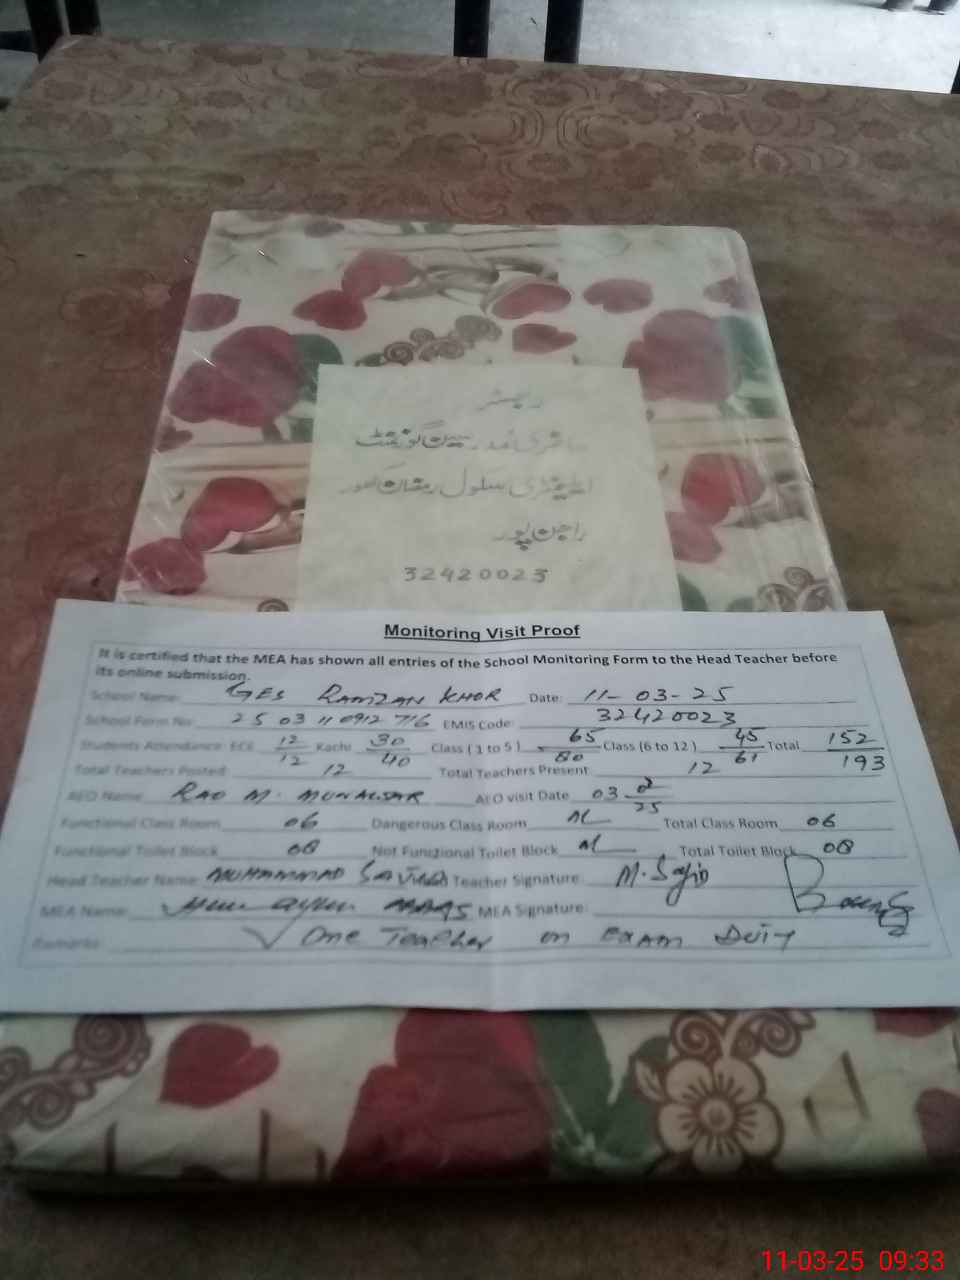 رجسٹر
حاضری مدرسین گورنمنٹ
ایلیمنٹری سکول رمضان کھور
راجن پور
32420023
Monitoring Visit Proof
It is certified that the MEA has shown all entries of the School Monitoring Form to the Head Teacher before
its online submission.
School Name: GES RAMZAN KHOR Date: 11-03-25
School Form No: 25 03 11 0912 716 EMIS Code: 32420023
Students Attendance: ECE 12/12 Kachi 30/40 Class (1 to 5) 65/80 Class (6 to 12) 45/61 Total 152/193
Total Teachers Posted: 12 Total Teachers Present: 12
AEO Name: RAO M. AEO visit Date 03 2/25
Functional Class Room 06 Dangerous Class Room Total Class Room 06
Functional Toilet Block 08 Not Functional Toilet Block Total Toilet Block 08
Head Teacher Name: MUHAMMAD SAJID Teacher Signature: M. Sajid
MEA Name: MEA Signature:
Remarks: One Teacher on Exam Duty
11-03-25 09:33